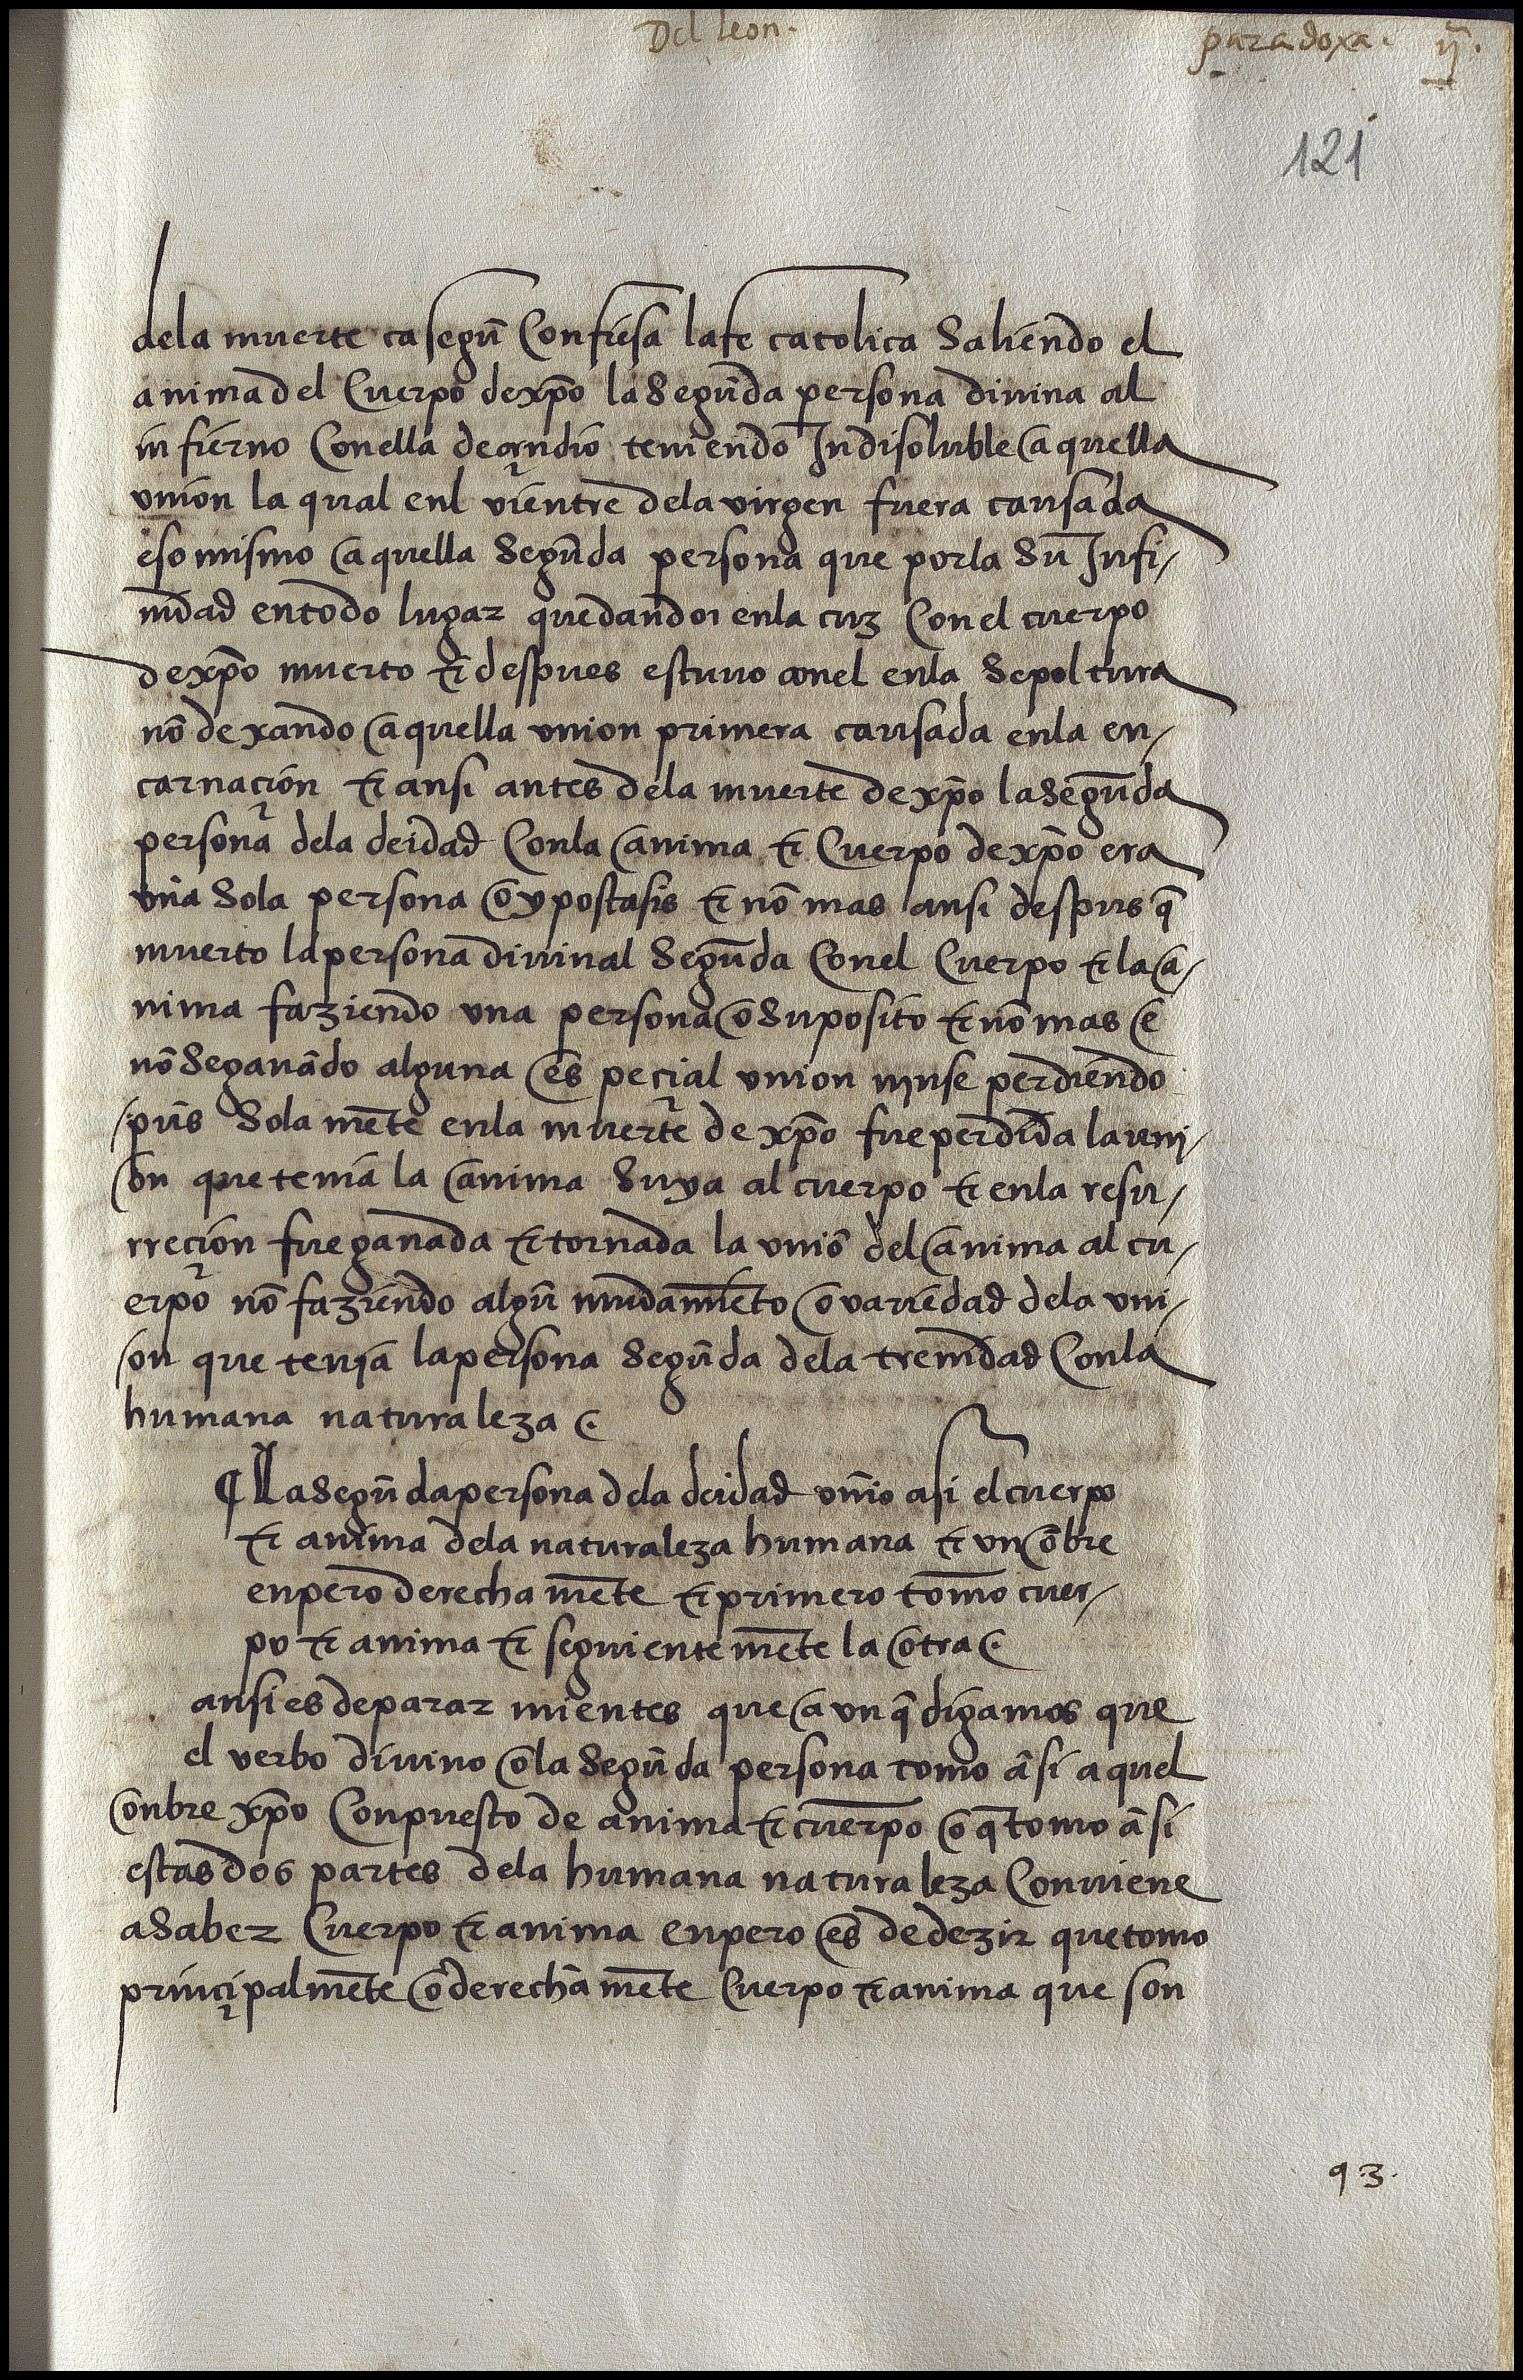 Del leon.
paradoxa. ij.
121
dela muerte ca segũ Confiesa lafe catolica Saliendo el
anima del Cuerpo dexp̃o la Segũda persona diuina al
infierno Conella deçendio teniendo Indisoluble aquella
vnion la qual enl vientre dela virgen fuera causada
eso mismo aquella Segũda persona que porla Su Infi/
nidad entodo lugar quedando enla cuz Conel cuerpo
dexp̃o muerto & despues estuuo conel enla Sepoltura
nõ dexando aquella vnion primera causada enla en/
carnaçion & ansi antes dela muerte dexp̃o lasegũda
persona dela deidad Conla anima & Cuerpo dexp̃o era
vna Sola persona o ypostasis & nõ mas ansi despus q̃
muerto la persona diuinal Segũda Conel Cuerpo & la a/
nima faziendo vna persona o Suposito & nõ mas e
nõ Seganãdo alguna espeçial vnion ninse perdiendo
pus̃ Sola mẽte enla muerte de xp̃o fue perdida la vni/
on que tenia la anima Suya al cuerpo & enla resu/
rreçion fue ganada & tornada la vniõ del anima al cu/
erpo nõ faziendo algũ mudamiẽto o variedad dela vni/
on que tenia la persona Segũda dela trenidad Conla
humana naturaleza
¶ La Segũda persona dela deidad vnio asi el cuerpo
& anima dela naturaleza humana & vn õbre
enpero derecha mẽte & primero tomo cuer/
po & anima & seguiente mẽte la otra
ansi es deparar mientes que avn q̃ digamos que
el verbo diuino o la Segũda persona tomo a si aquel
onbre xp̃o Conpuesto de anima & cuerpo o q̃ tomo a si
estas dos partes dela humana naturaleza Conuiene
a Saber Cuerpo & anima enpero es de dezir que tomo
prinçipalmẽte o derecha mẽte Cuerpo & anima que son
93.